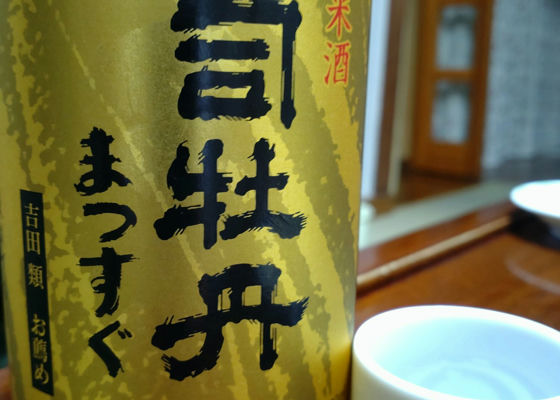 米酒
司牡丹
まっすぐ
吉田 類 お薦め